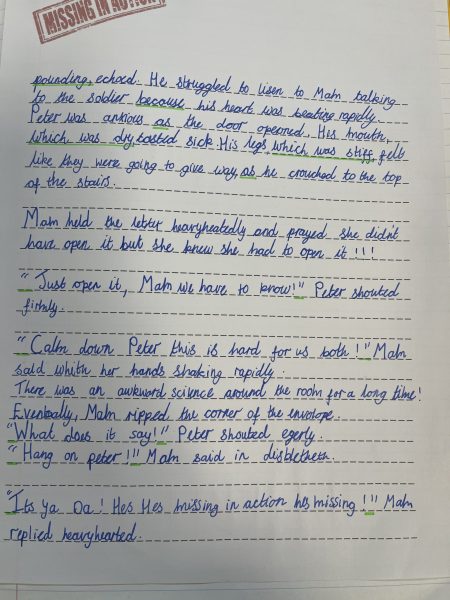 MISSING IN ACTION
pounding, echoed. He struggled to lisen to Mam talking
to the soldier because his heart was beating rapidly.
Peter was anxious as the door opened. His mouth,
which was dry, tasted sick. His legs, which was stiff, felt
like they were going to give way, as he crouched to the top
of the stairs.
Mam held the letter heavyheatedly and prayed she didn't
have open it but she knew she had to open it !!!
"Just open it, Mam we have to know!" Peter shouted
firmly.
"Calm down Peter this is hard for us both!" Mam
said whith her hands shaking rapidly.
There was an awkword science around the room for a long time!
Evenbally, Mam ripped the corner of the envolope.
"What does it say!" Peter shouted egerly.
"Hang on peter!" Mam said in
"Its Ya Da! Hes Hes missing in action hes missing!" Mam
replied heavyhearted.